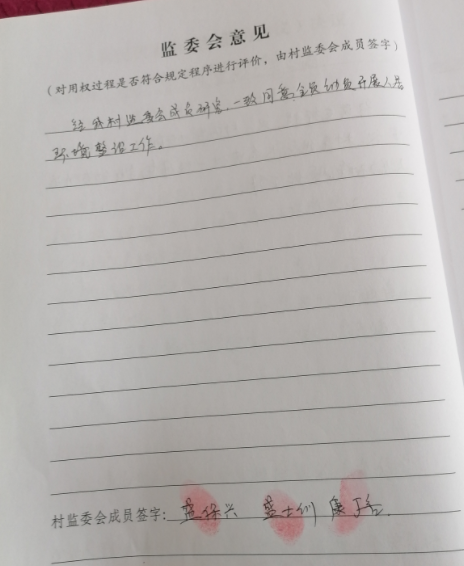 监委会意见
（对用权过程是否符合规定程序进行评价，由村监委会成员签字）
经我村监委会成员研究，一致同意全员动员开展人居
环境整治工作。
村监委会成员签字：